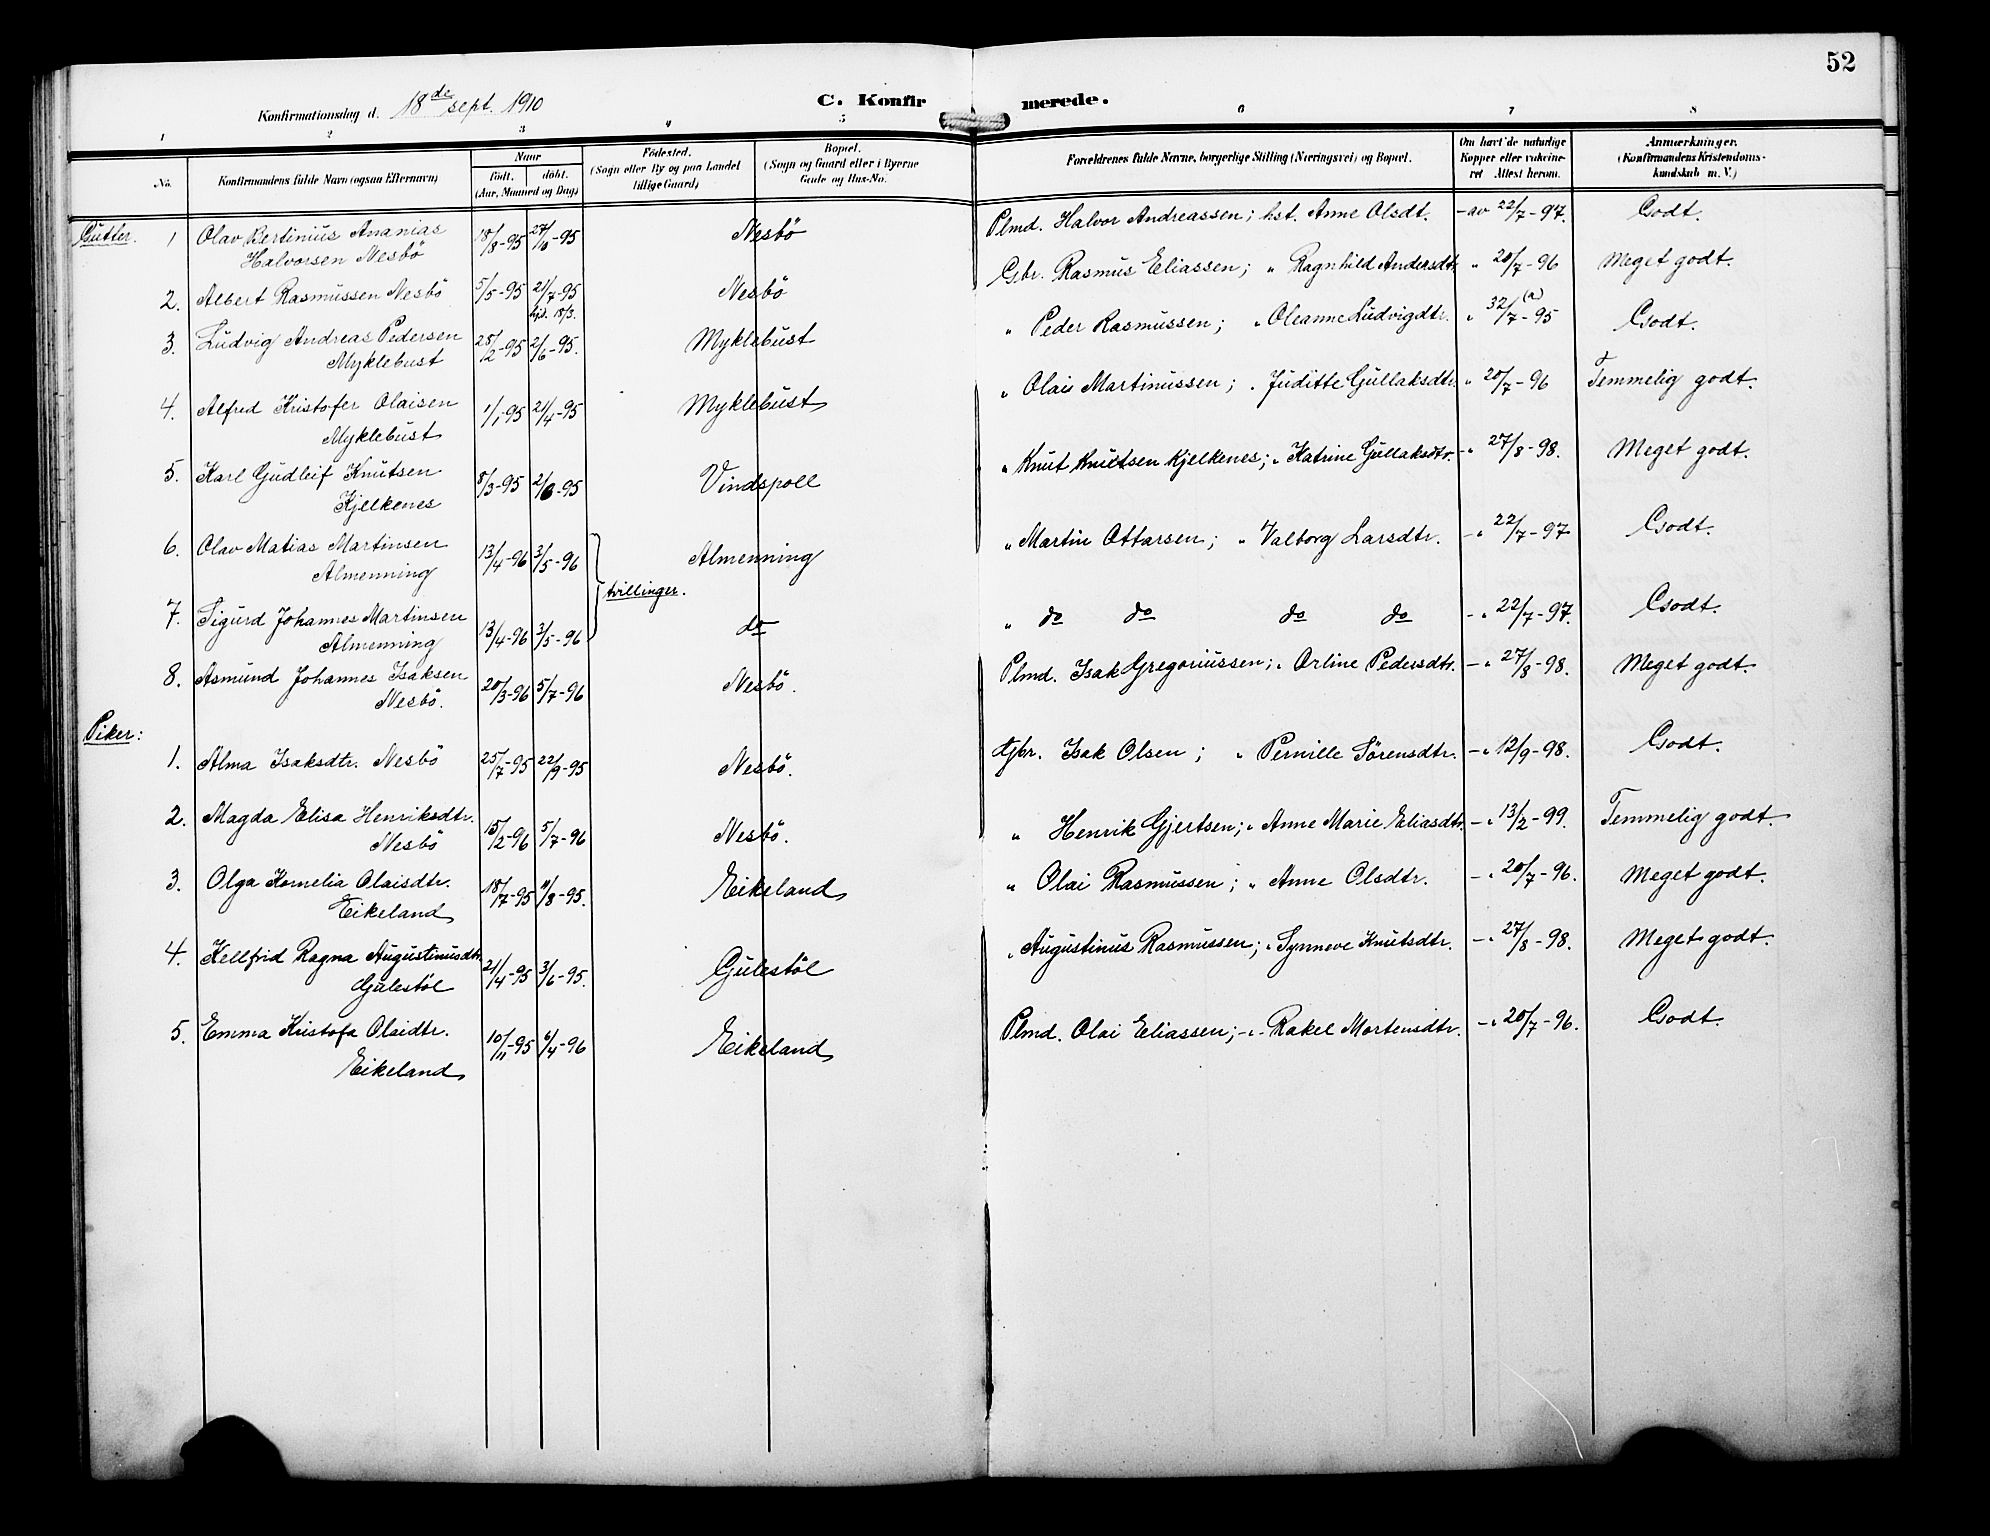 52
Konfirmationsdag d. 18de sept. 1910
C. Konfirmerede.
1 2 3 4 5 6 7 8
No.
Konfirmandens fulde Navn (ogsaa Efternavn)
Naar
født. døbt.
(Aar, Maaned og Dag)
Fødested.
(Sogn eller By og paa Landet
tillige Gaard)
Bopæl.
(Sogn og Gaard eller i Byerne
Gade og Hus-No.
Forældrenes fulde Navne, borgerlige Stilling (Næringsvei) og Bopæl.
Om havt de naturlige
Kopper eller vakcine-
ret Attest herom.
Anmærkninger.
(Konfirmandens Kristendoms-
kundskab m. V.)
Gutter. 1 Olav Bertinius Ananias 18/8-95 27/10-95 Nesbö Plmd. Halvor Andreassen; hst. Anne Olsdt. - av 22/7-97. Godt.
Halvorsen Nesbö
2. Albert Rasmussen Nesbö 5/5-95 21/7-95 Nesbö Gbr. Rasmus Eliassen; " Ragnhild Andersdt. " 20/7-96 Meget godt.
hjd. 18/3.
3. Ludvig Andreas Pedersen 28/2-95 2/6-95. Myklebust " Peder Rasmussen; " Oleanne Ludvigdtr. " 32/7-95 (a) Godt.
Myklebust
4. Alfred Kristofer Olaisen 1/1-95 21/4-95 Myklebust " Olais Martinussen; " Juditte Gullaksdtr. " 20/7-96 Temmelig godt.
Myklebust
5. Karl Gudleif Knutsen 8/3-95 2/6-95 Vindspoll " Knut Knutsen Kjelkenes; " Katrine Gullaksdtr. - " 27/8-98. Meget godt.
Kjelkenes
6. Olav Matias Martinsen 13/4-96 3/5-96 Almenning " Martin Ottarsen; " Valborg Larsdtr. - " 22/7-97 Godt.
Almenning
tvillinger.
7. Sigurd Johannes Martinsen 13/4-96 3/5-96 do " do do do do - " 22/7-97. Godt.
Almenning
8. Asmund Johannes Isaksen 20/3-96 5/7-96 Nesbö. Plmd. Isak Gregoriussen; " Orline Pedersdtr. - " 27/8-98. Meget godt.
Nesbö.
Piker:
1. Alma Isaksdtr. Nesbö 25/7-95 22/9-95 Nesbö. Gbr. Isak Olsen; " Pernille Sörensdtr. - " 12/9-98. Godt.
2. Magda Elisa Henriksdtr. 15/2-96 5/7-96 Nesbö. " Henrik Gjertsen; " Anne Marie Eliasdtr. - " 13/2-99. Temmelig godt.
Nesbö
3. Olga Kornelia Olaisdtr. 18/7-95 11/8-95. Eikeland " Olai Rasmussen; " Anne Olsdtr. - " 20/7-96. Meget godt.
Eikeland
4. Kellfrid Ragna Augustinusdtr. 21/4-95 3/6-95. Gulestöl " Augustinus Rasmussen; " Synneve Knutsdtr. - " 27/8-98. Meget godt.
Gulestöl
5. Emma Kristofa Olaidtr. 10/11-95 6/4-96 Eikeland Plmd. Olai Eliassen; - " - Rakel Mortensdtr. - " 20/7-96. Godt.
Eikeland